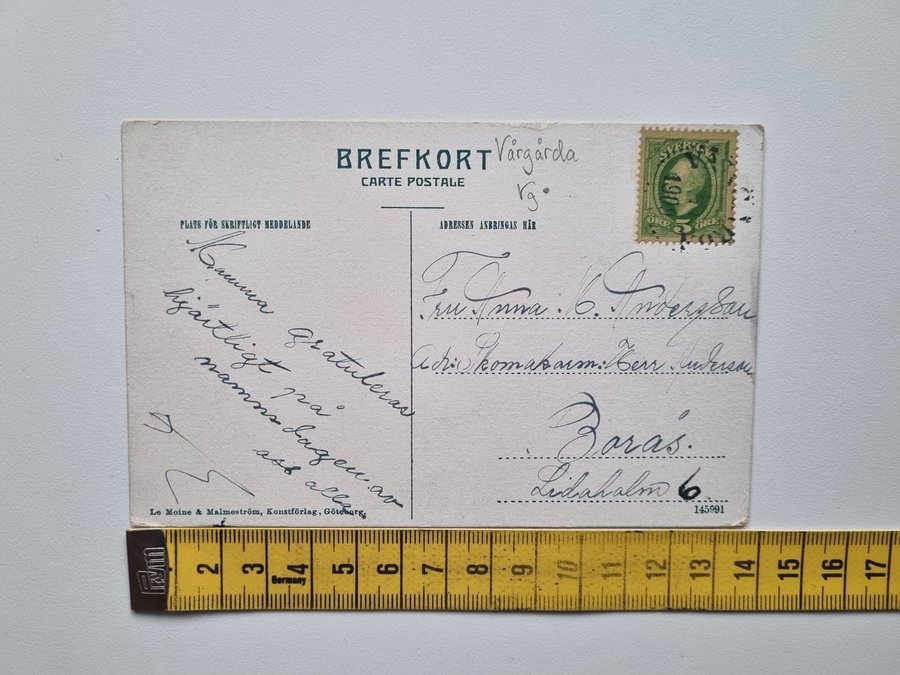 BREFKORT
CARTE POSTALE
Vårgårda
Vg.
SVERIGE
190
ÖRE 5 ÖRE
PLATS FÖR SKRIFTLIGT MEDDELANDE
ADRESSEN ANBRINGAS HÄR
Mamma gratuleras
hjärtligt på
namnsdagen av
oss alla.
Fru Anna M. Anderson
Adr: Skomakarm: Herr Anderson
Borås.
Lidaholm 6.
Le Moine & Malmeström, Konstförlag, Göteborg.
145991
BMI
2 3 4 5 6 7 8 9 10 11 12 13 14 15 16 17
Germany